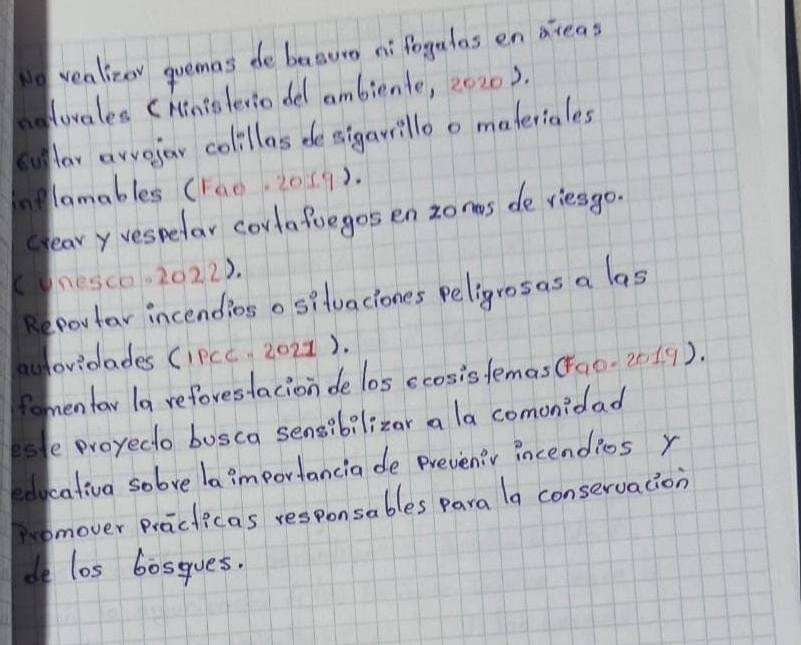 No realizar quemas de basura ni fogatas en áreas
naturales (Ministerio del ambiente, 2020).
Evitar arrojar colillas de sigarrillo o materiales
inflamables (Fao. 2019).
Crear y respetar cortafuegos en zonas de riesgo.
(Unesco. 2022).
Reportar incendios o situaciones peligrosas a las
autoridades (IPCC. 2021).
fomentar la reforestación de los ecosistemas (Fao. 2019).
este proyecto busca sensibilizar a la comonidad
educativa sobre la importancia de prevenir incendios y
promover prácticas responsables para la conservación
de los bosques.